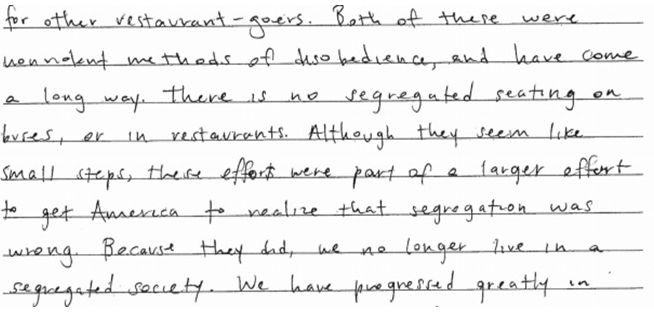 for other restaurant-goers. Both of these were
nonviolent methods of disobedience, and have come
a long way. There is no segregated seating on
buses, or in restaurants. Although they seem like
small steps, these efforts were part of a larger effort
to get America to realize that segregation was
wrong. Because they did, we no longer live in a
segregated society. We have progressed greatly in